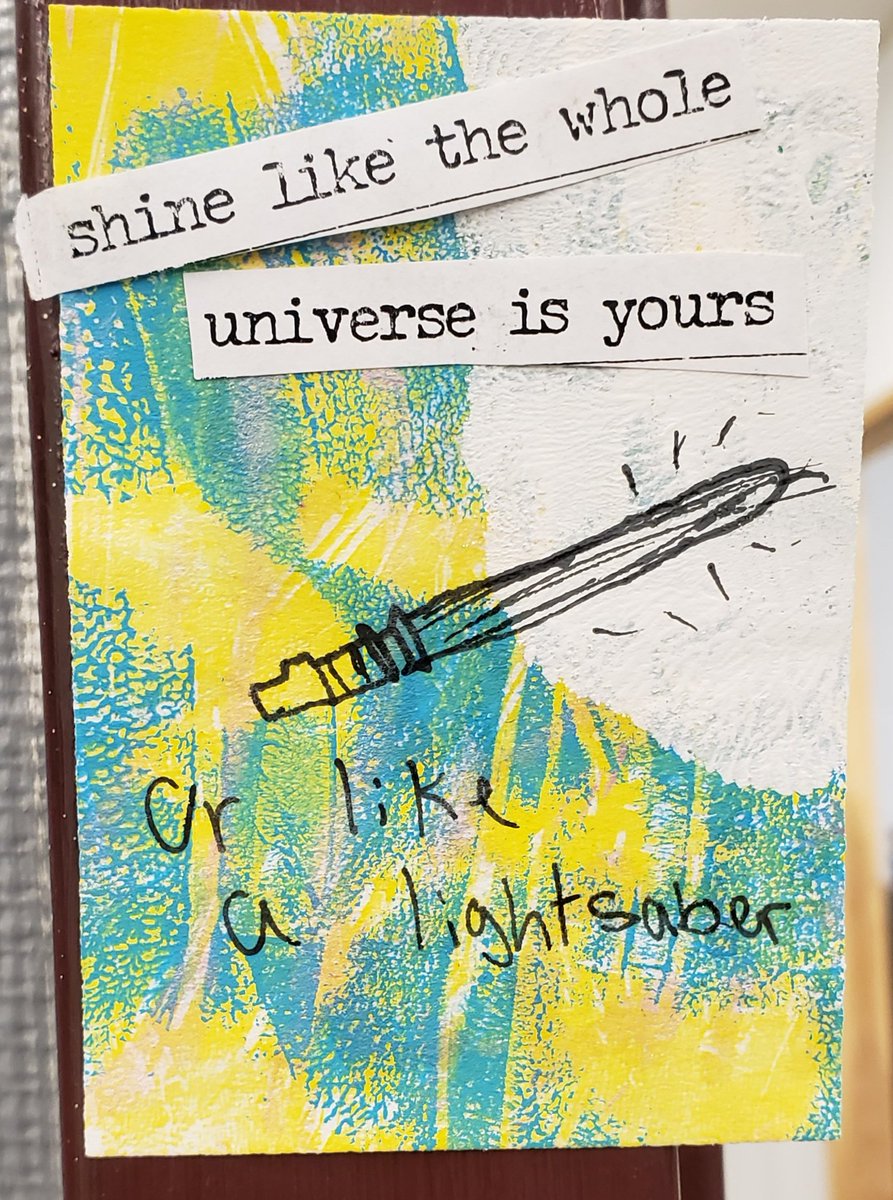 shine like the whole
universe is yours
Or like
a lightsaber